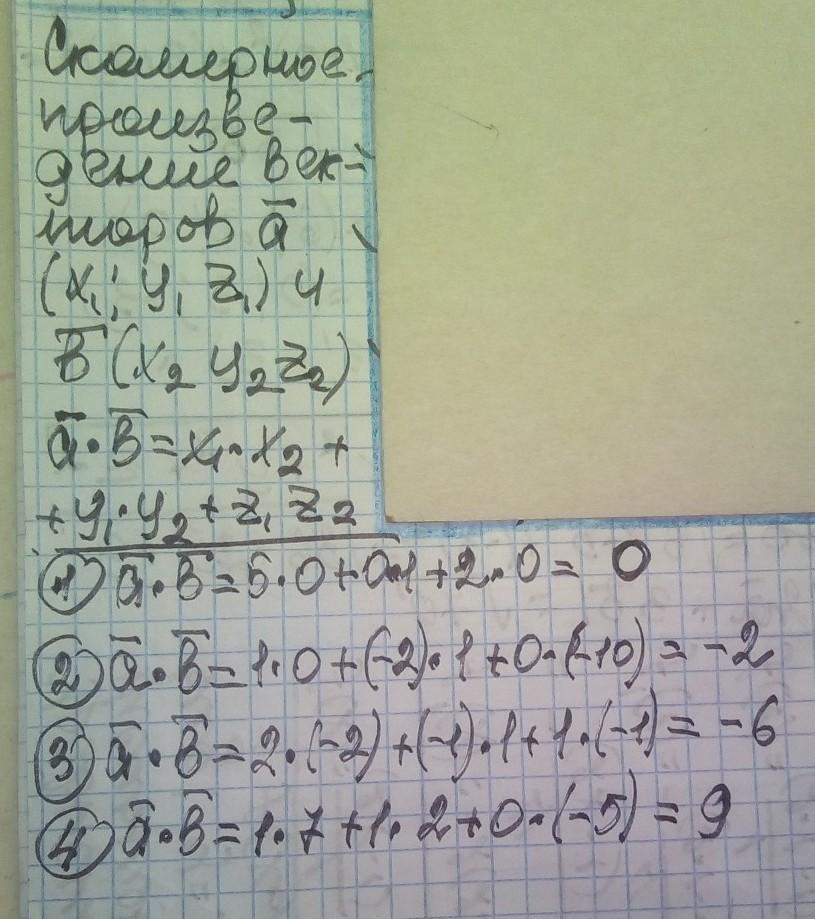 Скалярное
произве-
дение век-
торов a̅
(x₁; y₁ z₁) и
b̅ (x₂ y₂ z₂)
a̅·b̅=x₁·x₂+
+y₁·y₂+z₁ z₂
① a̅·b̅=5·0+0·1+2·0= 0
② a̅·b̅=1·0+(-2)·1+0·(-10)=-2
③ a̅·b̅=2·(-2)+(-1)·1+1·(-1)=-6
④ a̅·b̅=1·7+1·2+0·(-5)=9